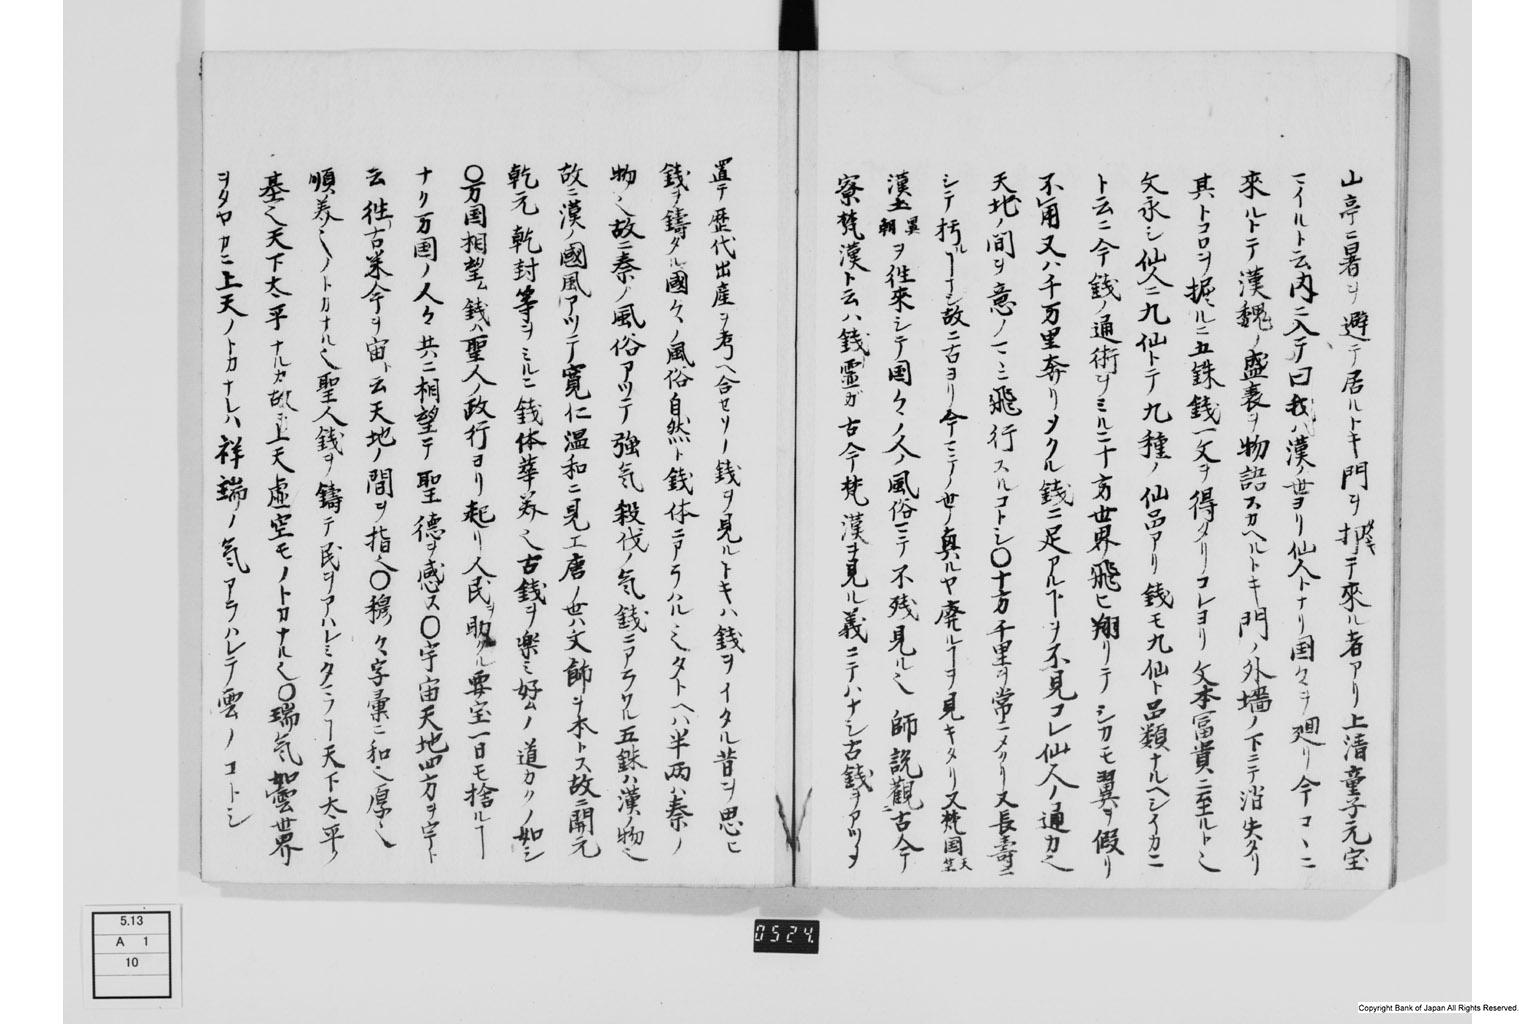 山亭ニ暑ヲ避テ居ルトキ門ヲ扣テ來ル者アリ上清童子元宝
マイルト云内ニ入テ曰我ハ漢ノ世ヨリ仙人トナリ国々ヲ廻リ今コヽニ
來ルトテ漢魏ノ盛衰ヲ物語スカヘルトキ門ノ外墻ノ下ニテ消失タリ
其トコロヲ掘ルニ五銖錢一文ヲ得タリコレヨリ文本冨貴ニ至ルト
文永シ仙人ニ九仙トテ九種ノ仙品アリ錢モ九仙ト品類ナルヘシイカニ
ト云ニ今錢ノ通術ヲミルニ十方世界飛ヒ翔リテシカモ翼ヲ假リ
不用又ハ千万里奔リヲクル錢ニ足アルヿヲ不見コレ仙人ノ通力也
天地ノ間ヲ意ノマヽニ飛行スルコトシ〇十方千里ヲ常ニメクリ又長壽ニ
シテ朽ルヿナシ故ニ古ヨリ今マテノ世ノ真ルヤ廃ルヿヲ見キタリ又梵国天竺
漢土異朝ヲ往來シテ国々ノ人ノ風俗マテ不残見ル也 師説觀古今
察梵漢ト云ハ錢靈ガ古今梵漢ヲ見ル義ニテハナシ古錢ヲアツメ
置テ歴代出産ヲ考ヘ合セソノ錢ヲ見ルトキハ錢ヲイタル昔ヲ思ヒ
錢ヲ鑄タル國々ノ風俗自然ト錢体ニアラハル也タトヘハ半両ハ秦ノ
物也故ニ秦ノ風俗アツテ強気殺伐ノ気錢ニアラワル五銖ハ漢ノ物也
故ニ漢ノ國風アツテ寛仁温和ニ見エ唐ノ世ハ文飾ヲ本トス故ニ開元
乾元乾封等ヲミルニ錢体華美也古錢ヲ楽ミ好ムノ道カクノ如シ
〇万国相望ム錢ハ聖人ノ政行ヨリ起リ人民ヲ助クル要宝一日モ捨ルヿ
ナク万国ノ人々共ニ相望テ聖德ヲ感ス〇宇宙天地四方ヲ宇ト
云往古來今ヲ宙ト云天地ノ間ヲ指也〇穆々字彙ニ和也厚也
順美也ノトカナル也聖人錢ヲ鑄テ民ヲアハレミタマフヿ天下太平ノ
基也天下太平ナルカ故ニ上天虚空モノトカナル也〇瑞気如雲世界
ヲタヤカニ上天ノトカナレハ祥瑞ノ気アラハレテ雲ノコトシ
5.13
A 1
10
0524
Copyright Bank of Japan All Rights Reserved.